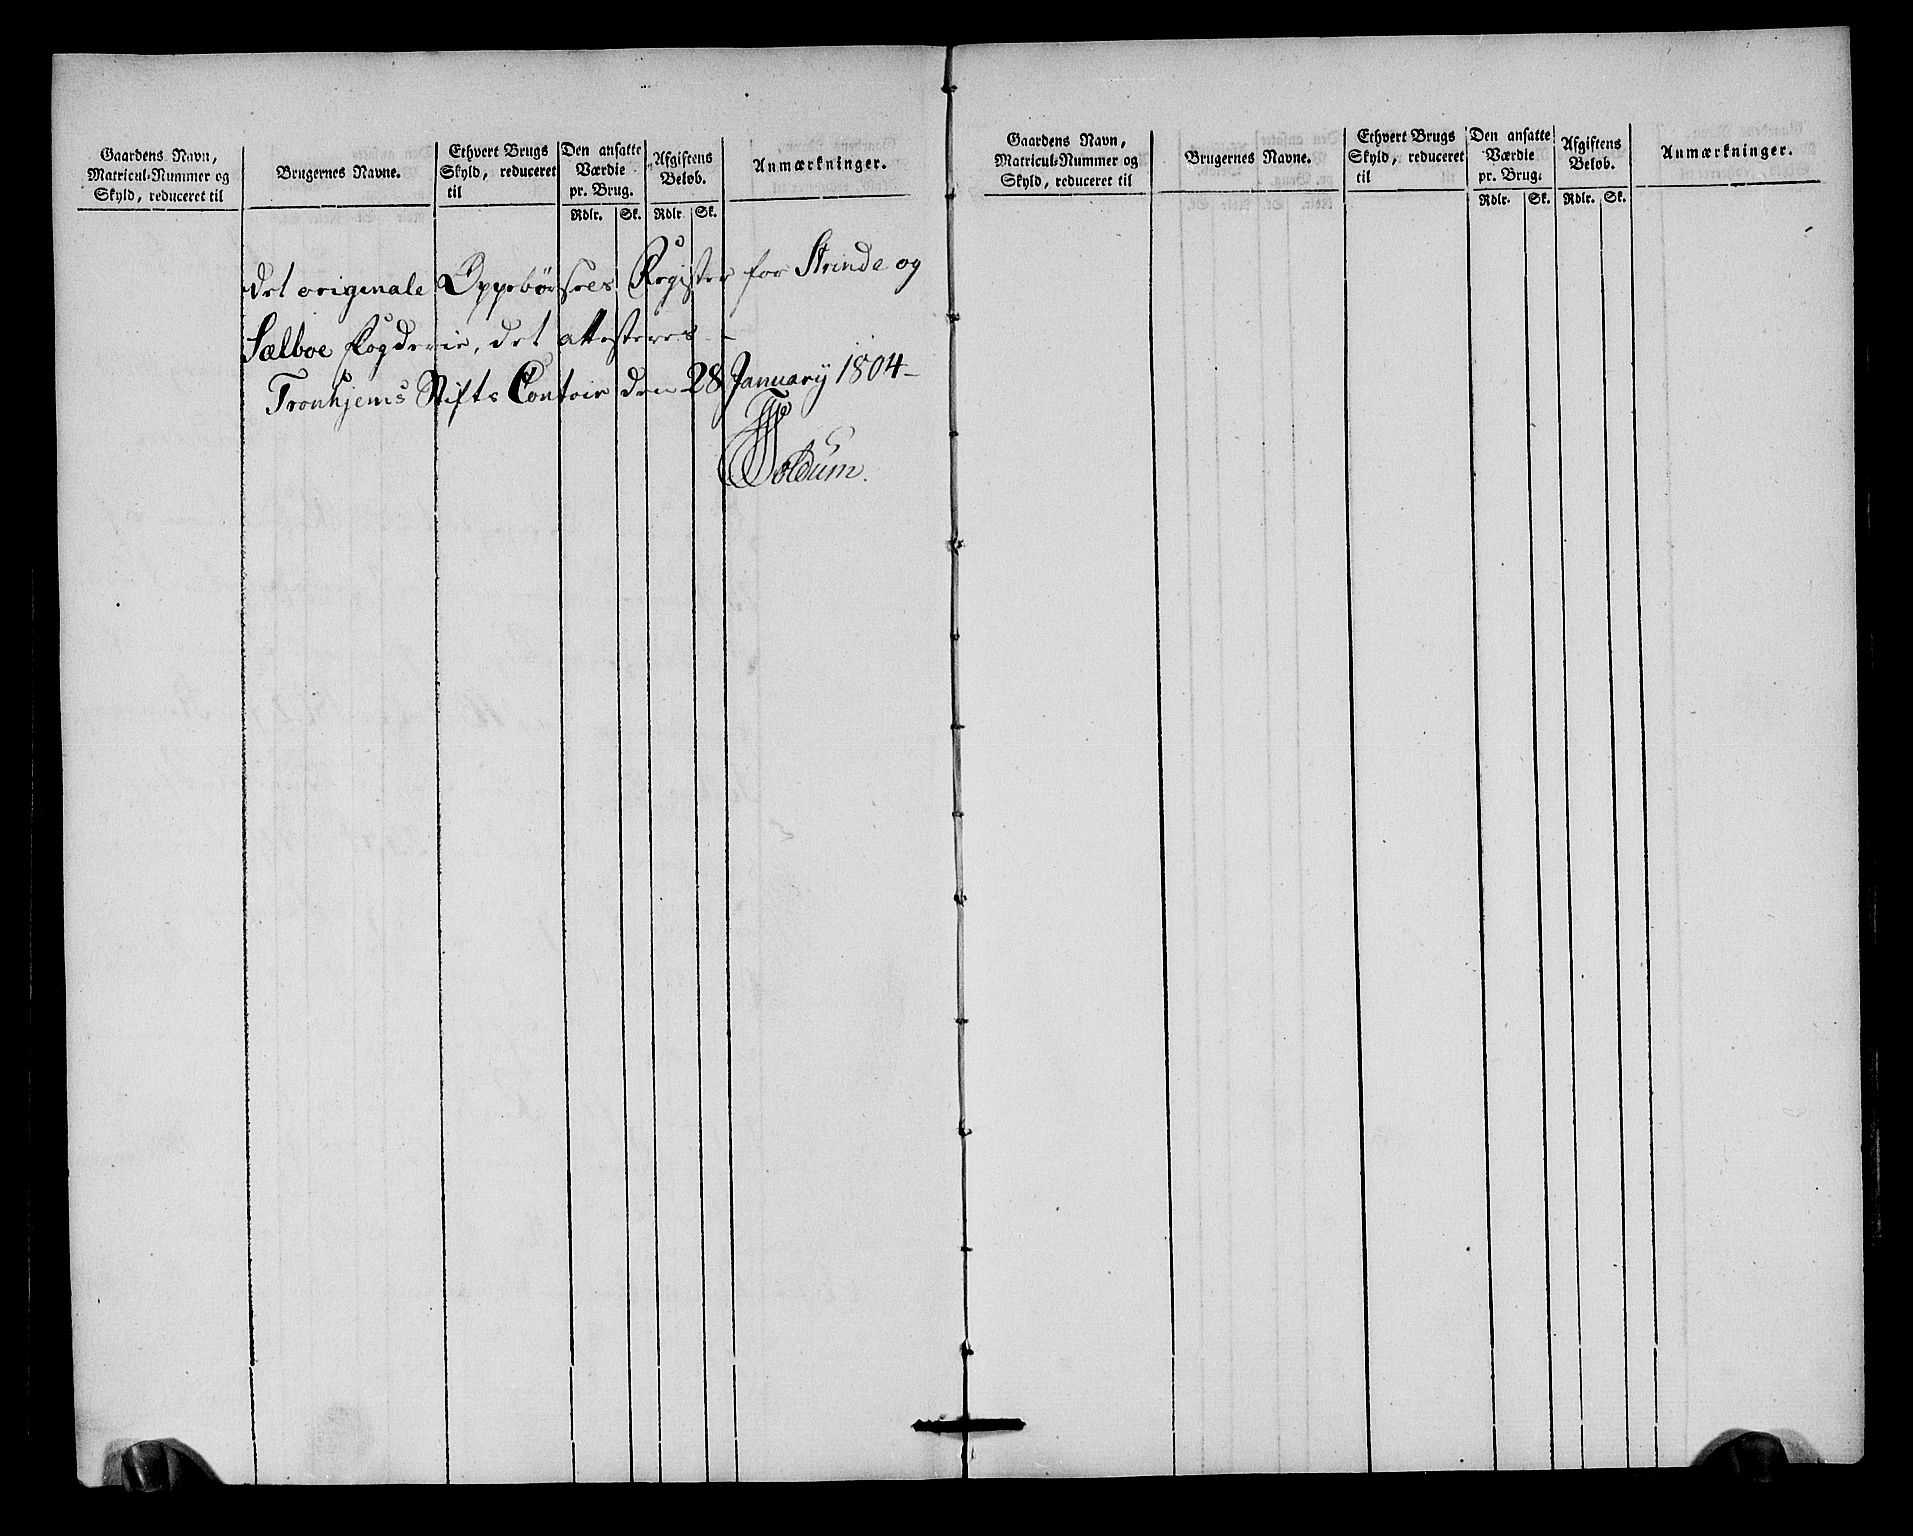 Gaardens Navn,
Matricul-Nummer og
Skyld, reduceret til
Brugernes Navne.
Ethvert Brugs
Skyld, reduceret
til
Den ansatte
Værdie
pr. Brug.
Rdlr. Sk.
Afgiftens
Beløb.
Rdlr. Sk.
Anmærkninger.
det originale Oppebørsels Register for Strinde og
Sælboe Fogderie, det attesteres. –
Tronhjems Stifts Contoir den 28 Januarÿ 1804 –
Gaardens Navn,
Matricul-Nummer og
Skyld, reduceret til
Brugernes Navne.
Ethvert Brugs
Skyld, reduceret
til
Den ansatte
Værdie
pr. Brug.
Rdlr. Sk.
Afgiftens
Beløb.
Rdlr. Sk.
Anmærkninger.